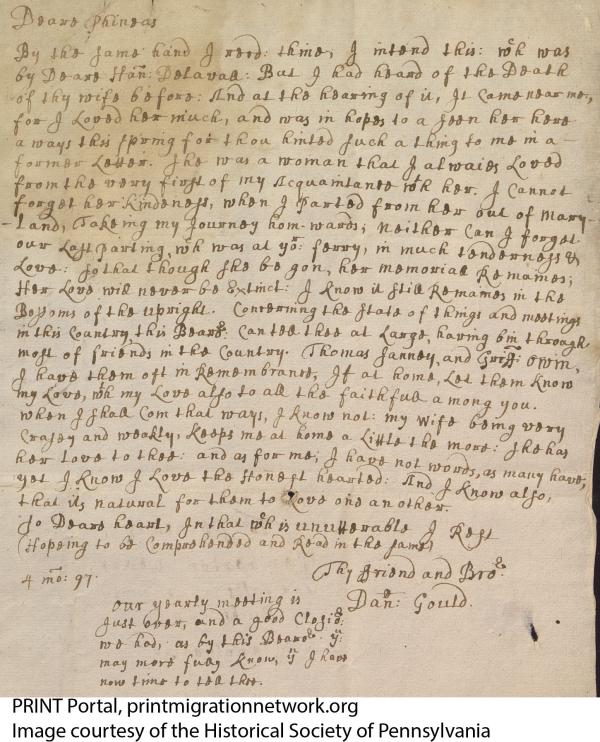 Deare Phineas
By the same hand I recd: thine, I intend this: wch was
by Deare Han: Delaval: But I had heard of the Death
of thy wife before: And at the hearing of it, It Came near me,
for I Loved her much, and was in hopes to a seen her here
a ways this spring for thou hinted such a thing to me in a
former Letter. She was a woman that I alwaies Loved
from the very first of my Acquaintance wth her. I Cannot
forget her Kindeness, when I parted from her out of Mary-
-Land, Takeing my Journey hom-wards; neither Can I forget
our Last parting, wch was at yor ferry, in much tenderness &
Love: so that though she be gon, her memorial Remaines;
Her Love will never be Extinct: I Know it still Remaines in the
Bossoms of the upright. Concerning the state of things and meetings
in this Country, this Bearer Can tell thee at Large, having bin through
most of friends in the Country. Thomas Janney, and Griff: Owin,
I have them oft in Remembrance, If at home, Let them Know
my Love, wth my Love also to all the faithfull among you.
when I shall Com that ways, I Know not: my wife being very
Crasey and weakly, Keeps me at home a Little the more: she has
her Love to thee: and as for me; I have not words, as many have,
yet I Know I Love the Honest hearted: And I Know also,
that its natural for them to Love one another.
So Deare heart, In that wch is unutterable I Rest
(Hopeing to be Comprehended and Read in the same)
Thy friend and Bror
4 mo: 97.
Dan: Gould.
our yearly meeting is
Just over, and a good Closie
we had, as by this Bearer yu
may more fully Know, yn I have
now time to tell thee.
PRINT Portal, printmigrationnetwork.org
Image courtesy of the Historical Society of Pennsylvania